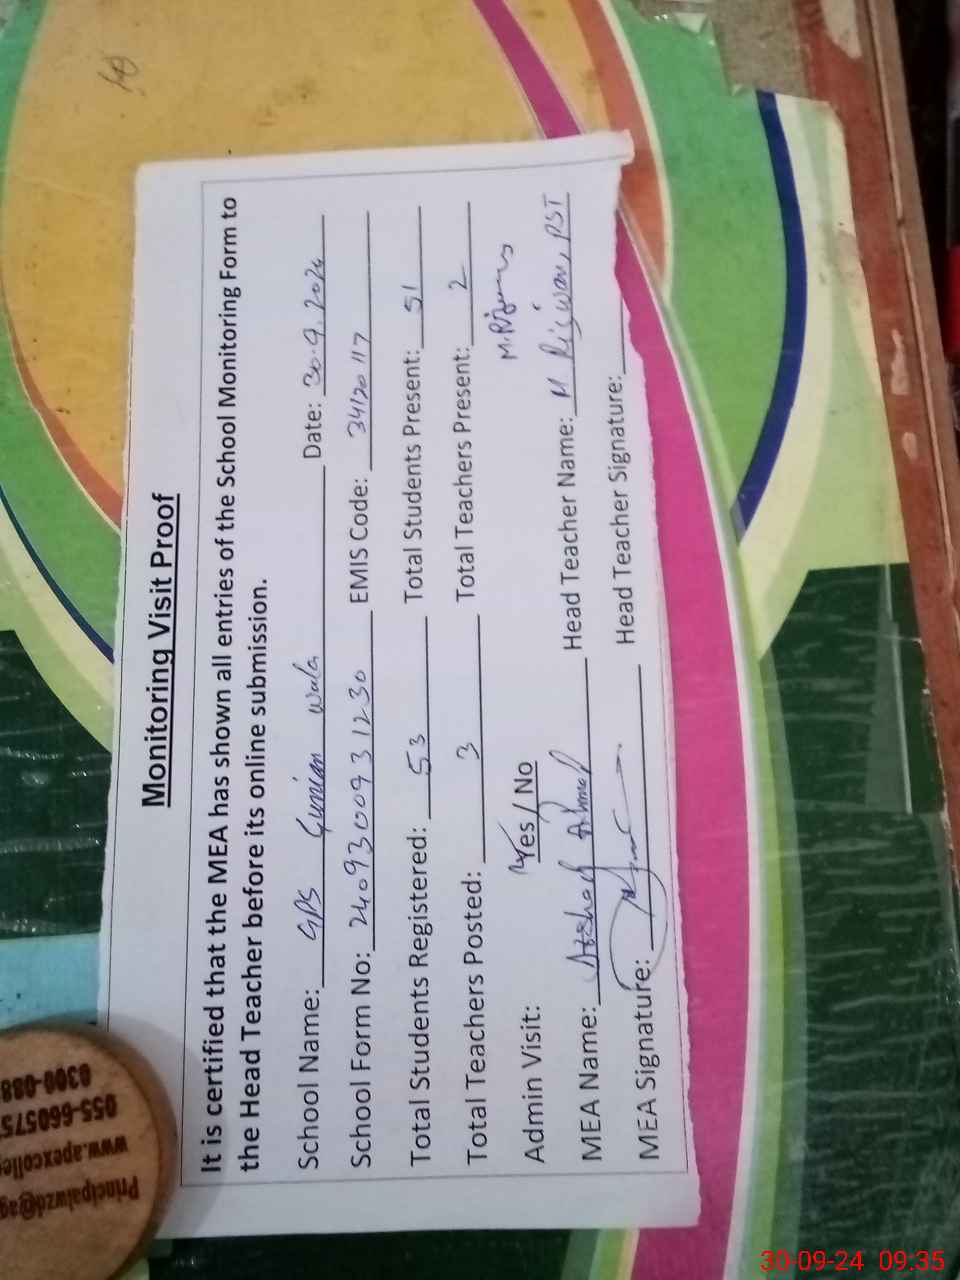 Monitoring Visit Proof
It is certified that the MEA has shown all entries of the School Monitoring Form to
the Head Teacher before its online submission.
School Name: GPS Gunian wala Date: 30.9.2024
School Form No: 2409300931230 EMIS Code: 34120117
Total Students Registered: 53 Total Students Present: 51
Total Teachers Posted: 3 Total Teachers Present: 2
Admin Visit: Yes / No
MEA Name: Ahmed Head Teacher Name: M Rizwan, PST
MEA Signature: Head Teacher Signature:
Principalwzd@ag
www.apexcolle
055-660575
0300-088
30-09-24 09:35